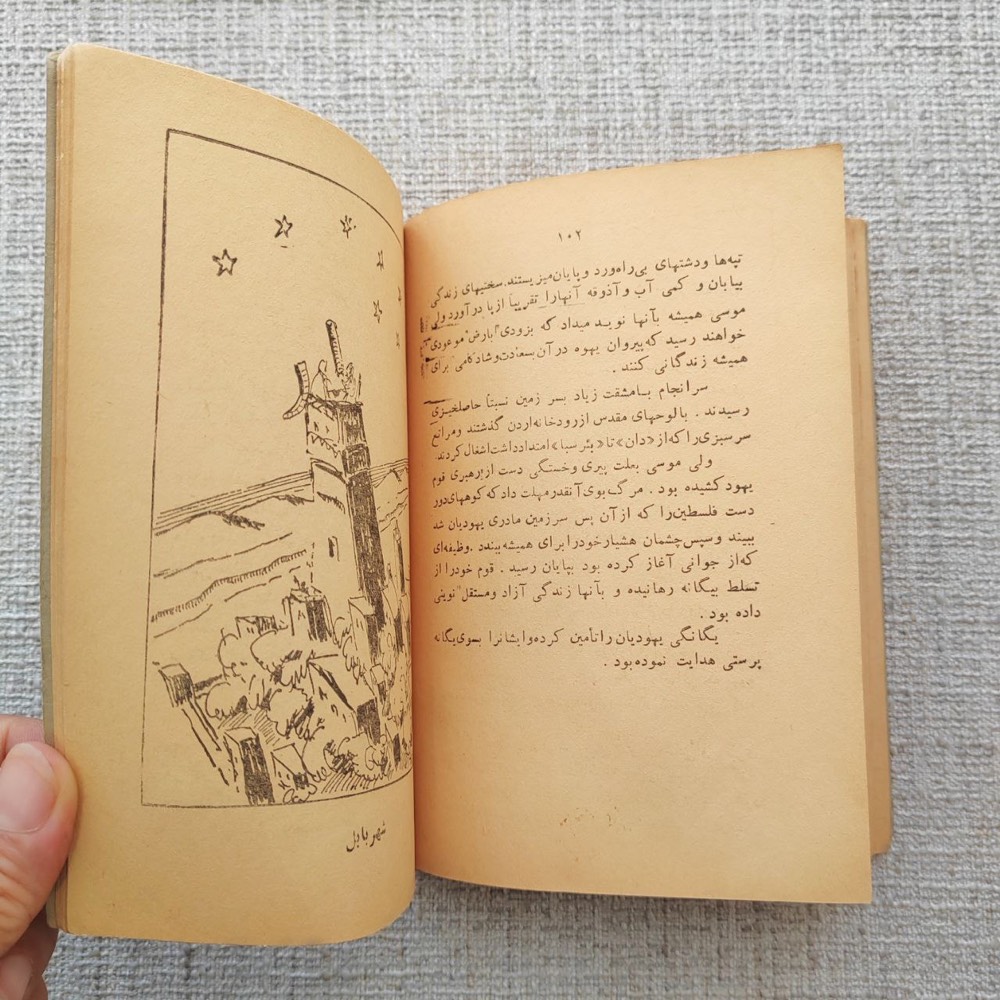 ۱۰۲
تپه‌ها ودشتهای بی‌راه‌ورد و پایان‌میزیستند. سختیهای زندگی
بیابان و کمی آب و آذوقه آنهارا تقریباً ازپا در آورد ولی
موسی همیشه بآنها نوید میداد که بزودی بارض موعودی
خواهند رسید که پیروان یهوه در آن بسعادت و شادکامی برای
همیشه زندگانی کنند .
سرانجام بامشقت زیاد بسر زمین نسبتاً حاصلخیزی
رسیدند . بالوحهای مقدس از رودخانه اردن گذشتند ومراتع
سرسبزی را که از «دان» تا «بئرسبا» امتداد داشت اشغال کردند.
ولی موسی بعلت پیری وخستگی دست از رهبری قوم
یهود کشیده بود . مرگ بوی آنقدر مهلت داد که کوههای دور
دست فلسطین را که از آن پس سرزمین مادری یهودیان شد
ببیند و سپس چشمان هشیار خودرا برای همیشه ببندد .وظیفه‌ای
که از جوانی آغاز کرده بود بپایان رسید . قوم خودرا از
تسلط بیگانه رهانیده و بآنها زندگی آزاد ومستقل نوینی
داده بود .
یگانگی یهودیان را تأمین کرده وایشانرا بسوی یگانه
پرستی هدایت نموده بود .
شهر بابل